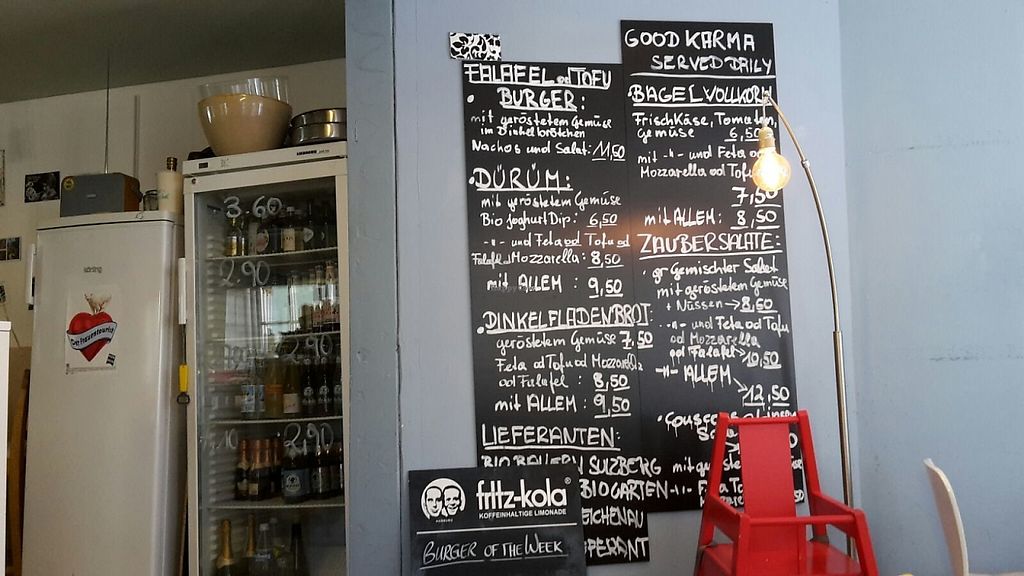 FALAFEL od TOFU
BURGER:
mit geröstetem Gemüse
im Dinkelbrötchen
Nachos und Salat: 11,50
DÜRÜM:
mit geröstetem Gemüse
Bio Joghurt Dip: 6,50
-"- und Feta od Tofu od
Falafel od Mozzarella: 8,50
mit ALLEM: 9,50
DINKELFLADENBROT
geröstetem Gemüse 7,50
Feta od Tofu od Mozzarella
od Falafel: 8,50
mit ALLEM: 9,50
LIEFERANTEN:
BIO BAUERN SULZBERG
BIOGARTEN
EICHENAU
GOOD KARMA
SERVED DAILY
BAGEL VOLLKORN
Frischkäse, Tomaten,
gemüse 6,50
mit -"- und Feta od
Mozzarella od Tofu
7,50
mit ALLEM: 8,50
ZAUBERSALATE:
gr Gemischter Salat
mit geröstetem Gemüse
+ Nüssen → 8,50
-"- und Feta od Tofu
od Mozzarella
od Falafel → 10,50
-"- ALLEM → 12,50
fritz-kola®
KOFFEINHALTIGE LIMONADE
HAMBURG
BURGER OF THE WEEK
3.60
2,90
2,90
LIEBHERR